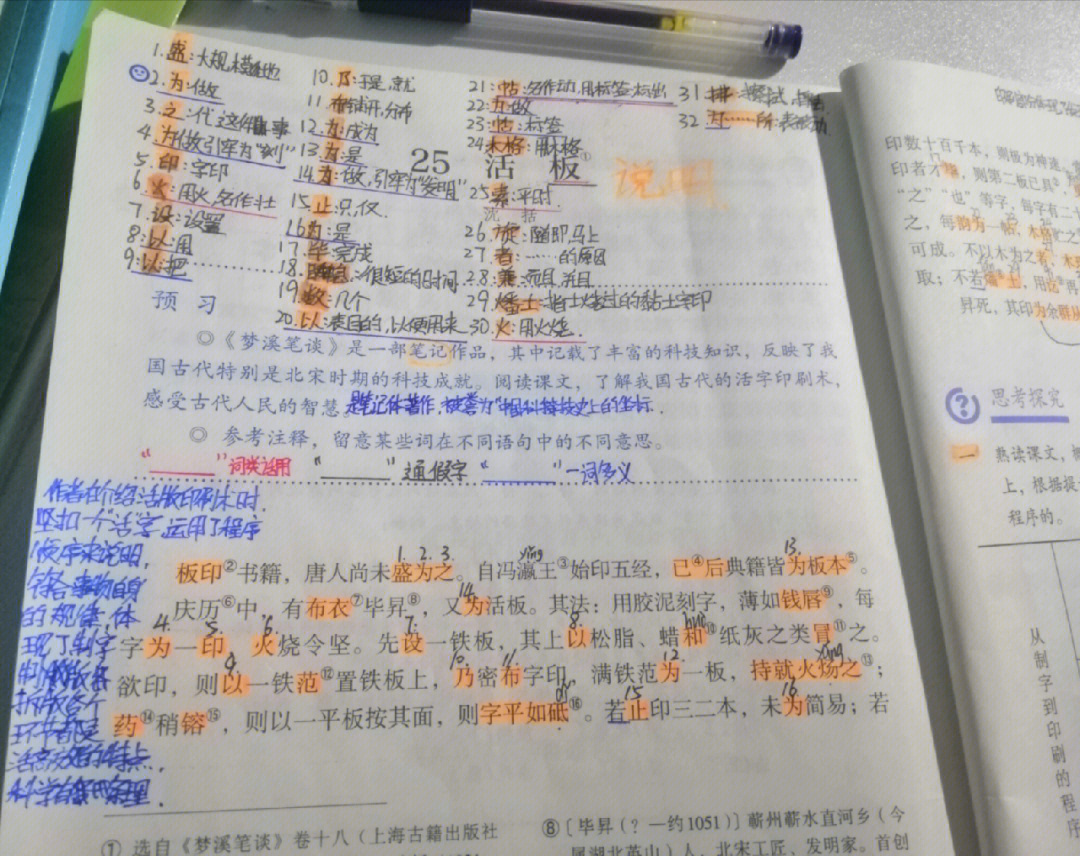 1. 盛:大规模地
2. 为:做
3. 之:代这件事
4. 为:做,引牢为“刻”
5. 印:字印
6. 火:用火,名作状
7. 设:设置
8. 以:用
9. 以:把
10. 乃:于是,就
11. 布:铺开,分布
12. 为:成为
13. 为:是
14. 为:做,引牢为“发明”
15. 止:只,仅.
16. 为:是
17. 毕:完成
18. 很短的时间
19. 数:几个
20. 以:表目的,以便用来
21: 帖:名作动,用标签标出
22: 为:做
23: 帖:标签
24: 木格:用木格
25 素:平时
26. 旋:随即,马上
27 者:……的原因
28. 兼:而且,并且
29. 燔土:指火烧过的黏土字印
30. 火:用火烧.
31 拂:擦拭
32 为……所:表被动
25 活板①
说明
沈括
预习
◎《梦溪笔谈》是一部笔记作品,其中记载了丰富的科技知识,反映了我
国古代特别是北宋时期的科技成就。阅读课文,了解我国古代的活字印刷术,
感受古代人民的智慧。是笔记体著作,被誉为“中国科技史上的坐标.
◎ 参考注释,留意某些词在不同语句中的不同意思。
“______”词类活用 “______”通假字 “______”一词多义
作者在介绍活版印刷术时.
坚扣一个“活”字,运用了程序
顺序来说明,
符合事物自身
的规律,体
现了制字
活高效的特点.
1. 2. 3. yíng 13.
板印②书籍,唐人尚未盛为之。自冯瀛王③始印五经,已④后典籍皆为板本⑤。
14.
庆历⑥中,有布衣⑦毕昇⑧,又为活板。其法:用胶泥刻字,薄如钱唇⑨,每
4. 5. 6. 7. 8. huò
字为一印,火烧令坚。先设一铁板,其上以松脂、蜡和⑩纸灰之类冒⑪之。
9. 10. 11. 12. yáng
欲印,则以一铁范⑫置铁板上,乃密布字印,满铁范为一板,持就火炀之⑬;
dǐ 15 16
药⑭稍镕⑮,则以一平板按其面,则字平如砥⑯。若止印三二本,未为简易;若
① 选自《梦溪笔谈》卷十八(上海古籍出版社
⑧[毕昇(?—约1051)] 蕲州蕲水直河乡(今
属湖北英山)人,北宋工匠、发明家。首创
印数十百千本,则板为神速。
印者才,则第二板已具
“之”“也”等字,每字有二十
之,每韵为一帖,木格贮之
可成。不以木为之者,木
取;不若燔土,用讫再
昇死,其印为余群从
思考探究
一 熟读课文,
上,根据提
程序的。
从制字到印刷的程序